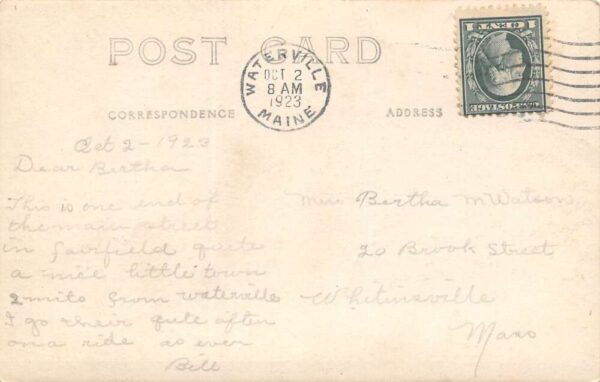 POST CARD
WATERVILLE
OCT 2
8 AM
1923
MAINE
CORRESPONDENCE
ADDRESS
Oct 2 - 1923
Dear Bertha
This is one end of
the main street
in fairfield quite
a nice little town
2 mils from waterville
I go their qute often
on a ride as ever
Bill
Miss Bertha M Watson
20 Brook Street
Whitinsville
Mass
U.S. POSTAGE